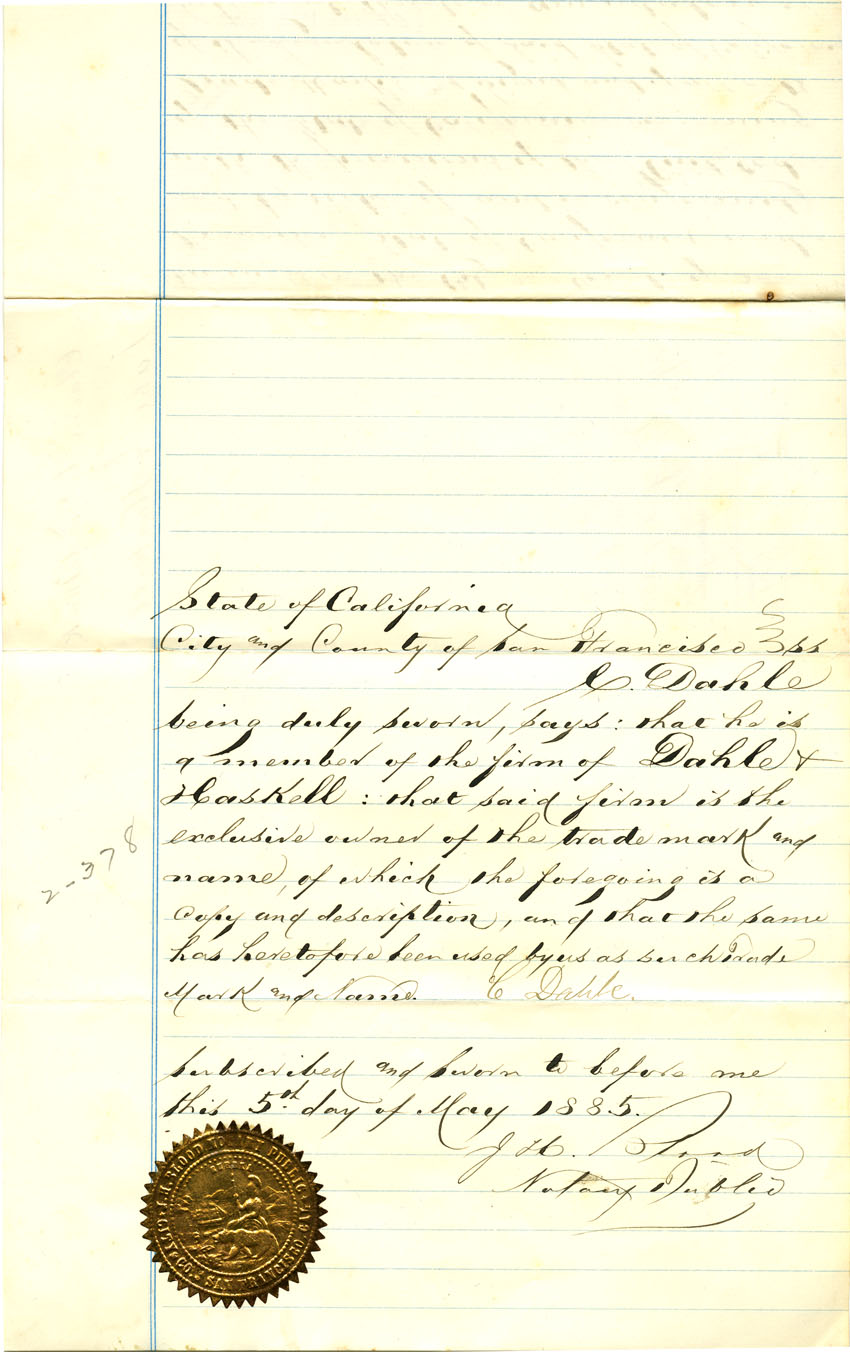 State of California
City and County of San Francisco } ss
C. Dahle
being duly sworn, says: that he is
a member of the firm of Dahle &
Haskell: that said firm is the
exclusive owner of the trade mark and
name, of which the foregoing is a
copy and description, and that the same
has heretofore been used by us as such Trade
Mark and Name. C Dahle.
2-378
subscribed and sworn to before me
this 5th day of May 1885.
J H.
Notary Public
J.H. BLOOD NOTARY PUBLIC
CITY & CO. SAN FRANCISCO